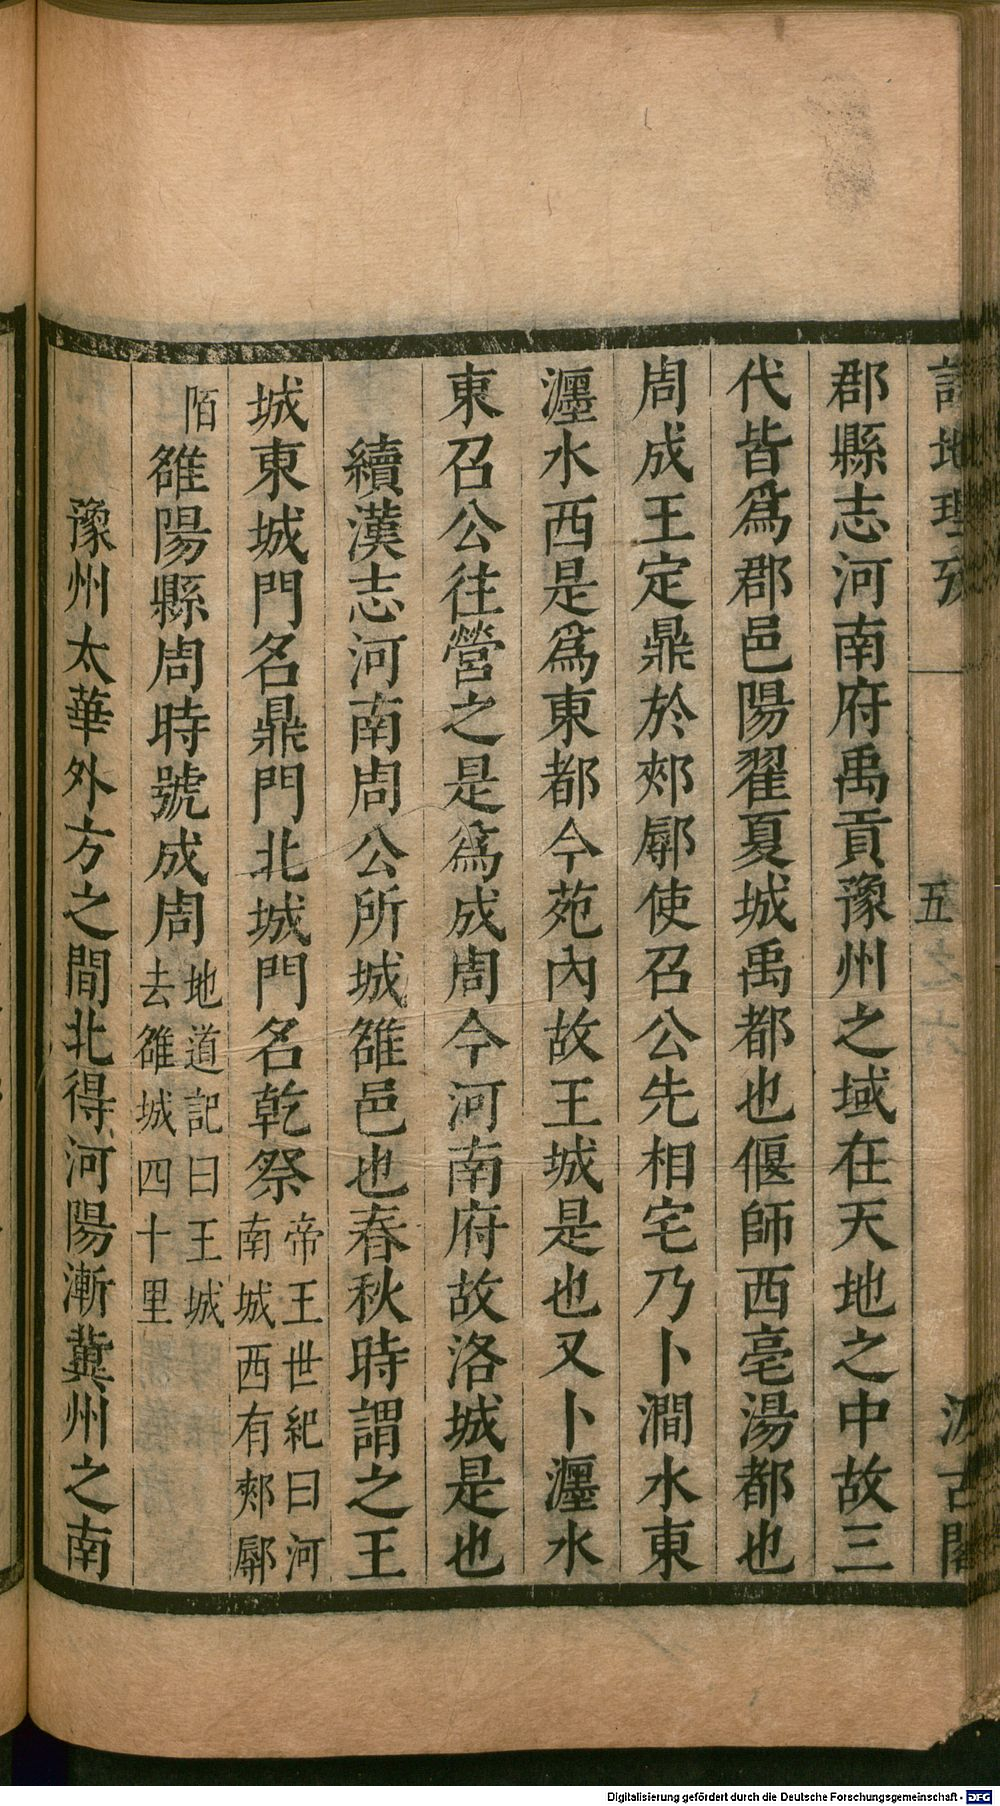 詩地理攷
五
汲古閣
郡縣志河南府禹貢豫州之域在天地之中故三
代皆爲郡邑陽翟夏城禹都也偃師西亳湯都也
周成王定鼎於郟鄏使召公先相宅乃卜澗水東
瀍水西是爲東都今苑內故王城是也又卜瀍水
東召公往營之是爲成周今河南府故洛城是也
續漢志河南周公所城雒邑也春秋時謂之王
城東城門名鼎門北城門名乾祭
帝王世紀曰河
南城西有郟鄏
陌
雒陽縣周時號成周
地道記曰王城
去雒城四十里
豫州太華外方之間北得河陽漸冀州之南
Digitalisierung gefördert durch die Deutsche Forschungsgemeinschaft - DFG